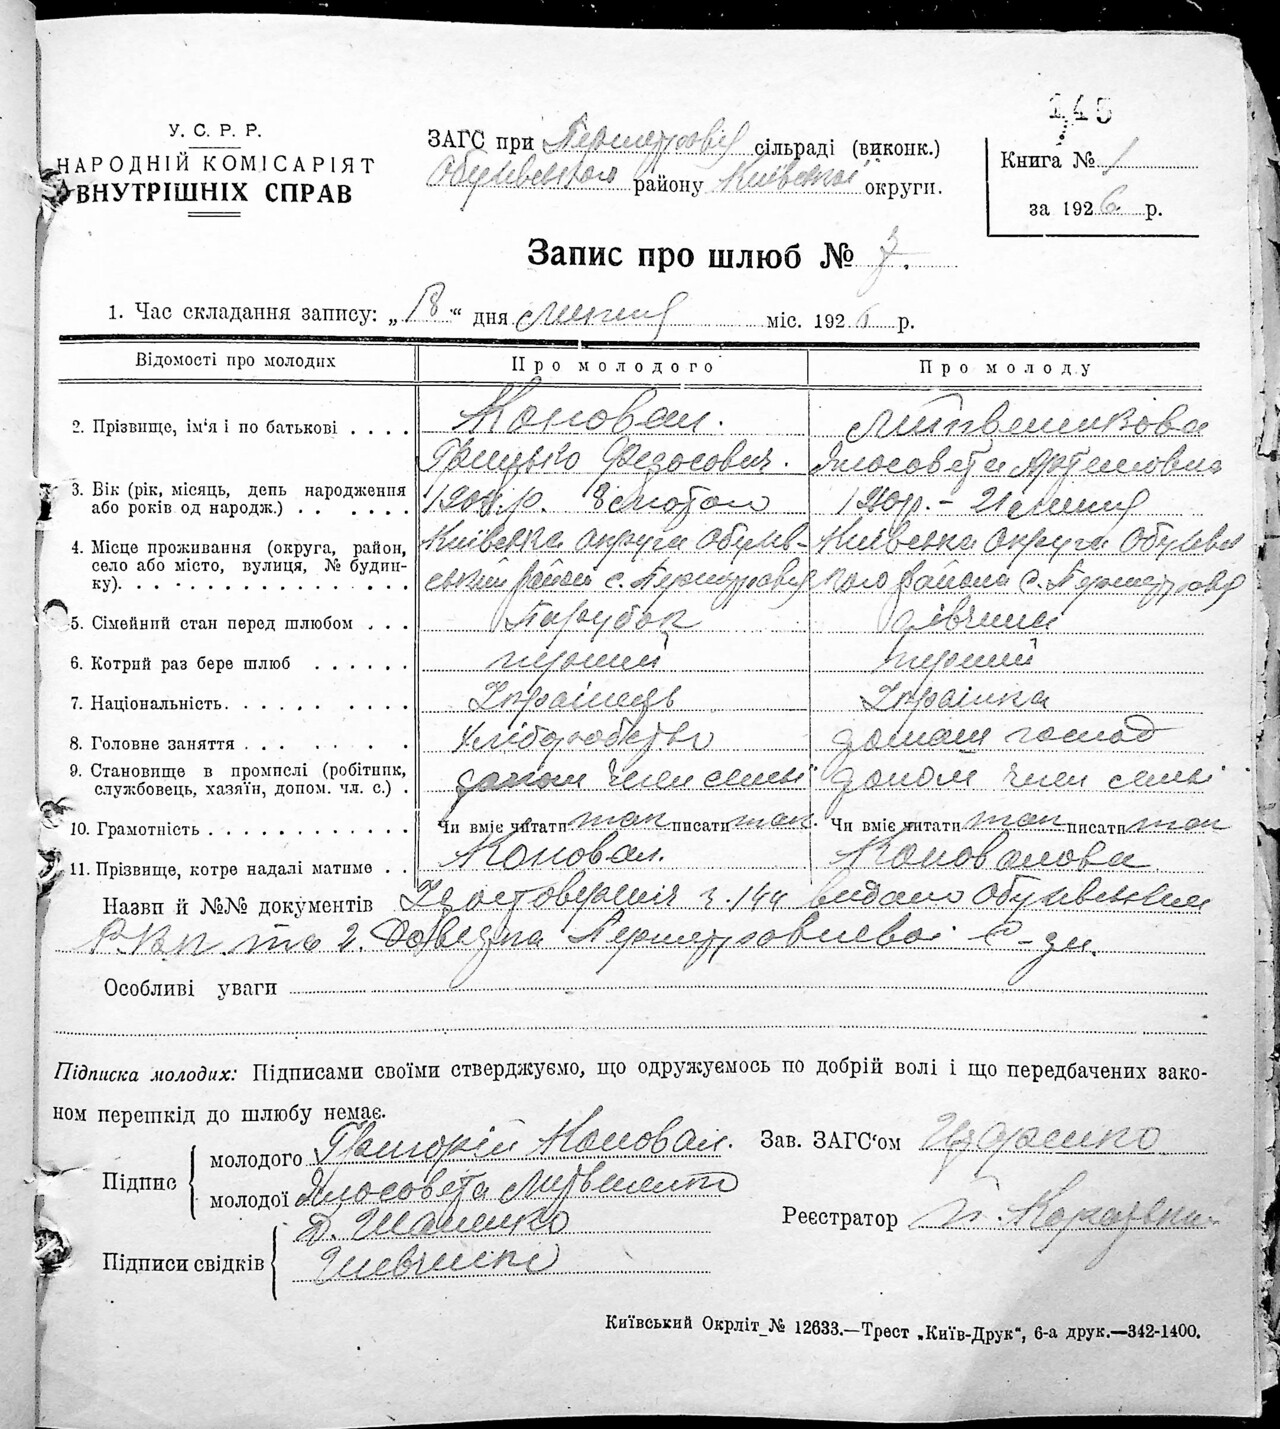 145
У. С. Р. Р.
НАРОДНІЙ КОМІСАРІЯТ
ВНУТРІШНІХ СПРАВ
ЗАГС при сільраді (виконк.)
району Київської округи.
Книга № 1
за 1926 р.
Запис про шлюб №
1. Час складання запису: „18“ дня липня міс. 1926 р.
Відомості про молодих Про молодого Про молоду
2. Прізвище, ім'я і по батькові . . . . Коновал.
Грицько Федосович. Ялосовета Артемовна
3. Вік (рік, місяць, день народження
або років од народж.) . . . . . . р. 8 лютого р. - 21 липня
4. Місце проживання (округа, район,
село або місто, вулиця, № будин-
ку). . . . . . . . . . . . . . . . Київська округа Обухів- Київська округа
ський район с. района с.
5. Сімейний стан перед шлюбом . . . Парубок дівчина
6. Котрий раз бере шлюб . . . . . . перший перший
7. Національність. . . . . . . . . . Українець Українка
8. Головне заняття . . . . . . . . хліборобство домаш господ
9. Становище в промислі (робітник,
службовець, хазяїн, допом. чл. с.) . допом член семьі допом член семьі
10. Грамотність . . . . . . . . . . . . Чи вміє читати так писати так. Чи вміє читати так писати так
11. Прізвище, котре надалі матиме . . Коновал. Коновалова
Назви й №№ документів 144 видано Обухівським
РВК та 2. Довідка
Особливі уваги
Підписка молодих: Підписами своїми стверджуємо, що одружуємось по добрій волі і що передбачених зако-
ном перешкід до шлюбу немає.
Підпис молодого Григорій Коновал.
молодої Ялосовета
Підписи свідків Д. Шапенко
Шевченко
Зав. ЗАГС'ом
Реєстратор
Київський Окрліт № 12633.—Трест „Київ-Друк“, 6-а друк.—342-1400.